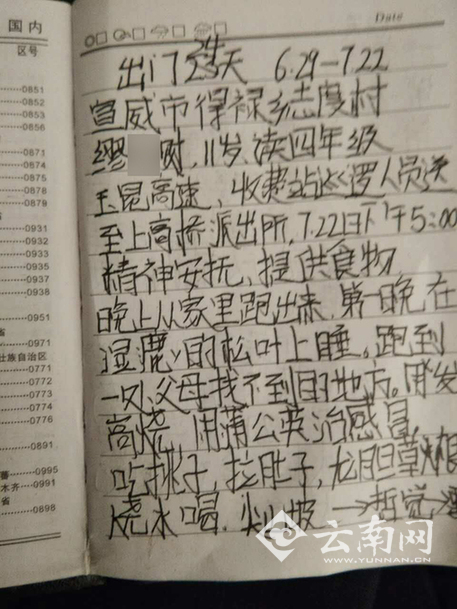 国内
区号
Date
0851
0852
0853
0856
0871
0874
0875
0878
0879
0931
0932
0933
0935
0937
0938
0951
省
0971
壮族自治区
0771
0772
0773
0774
0776
省
0891
0995
木齐 0991
省
0898
出门24天 6.29-7.22
宣威市得禄乡志度村
缪 财，11岁，读四年级
玉昆高速，收费站巡逻人员送
至上高桥派出所，7.22日下午5:00
精神安抚，提供食物
晚上从家里跑出来，第一晚在
湿漉漉的松叶上睡，跑到
一处父母找不到的地方。 发
高烧 用蒲公英治感冒
吃桃子，拉肚子，龙胆草
烧水喝.
云南网
WWW.YUNNAN.CN